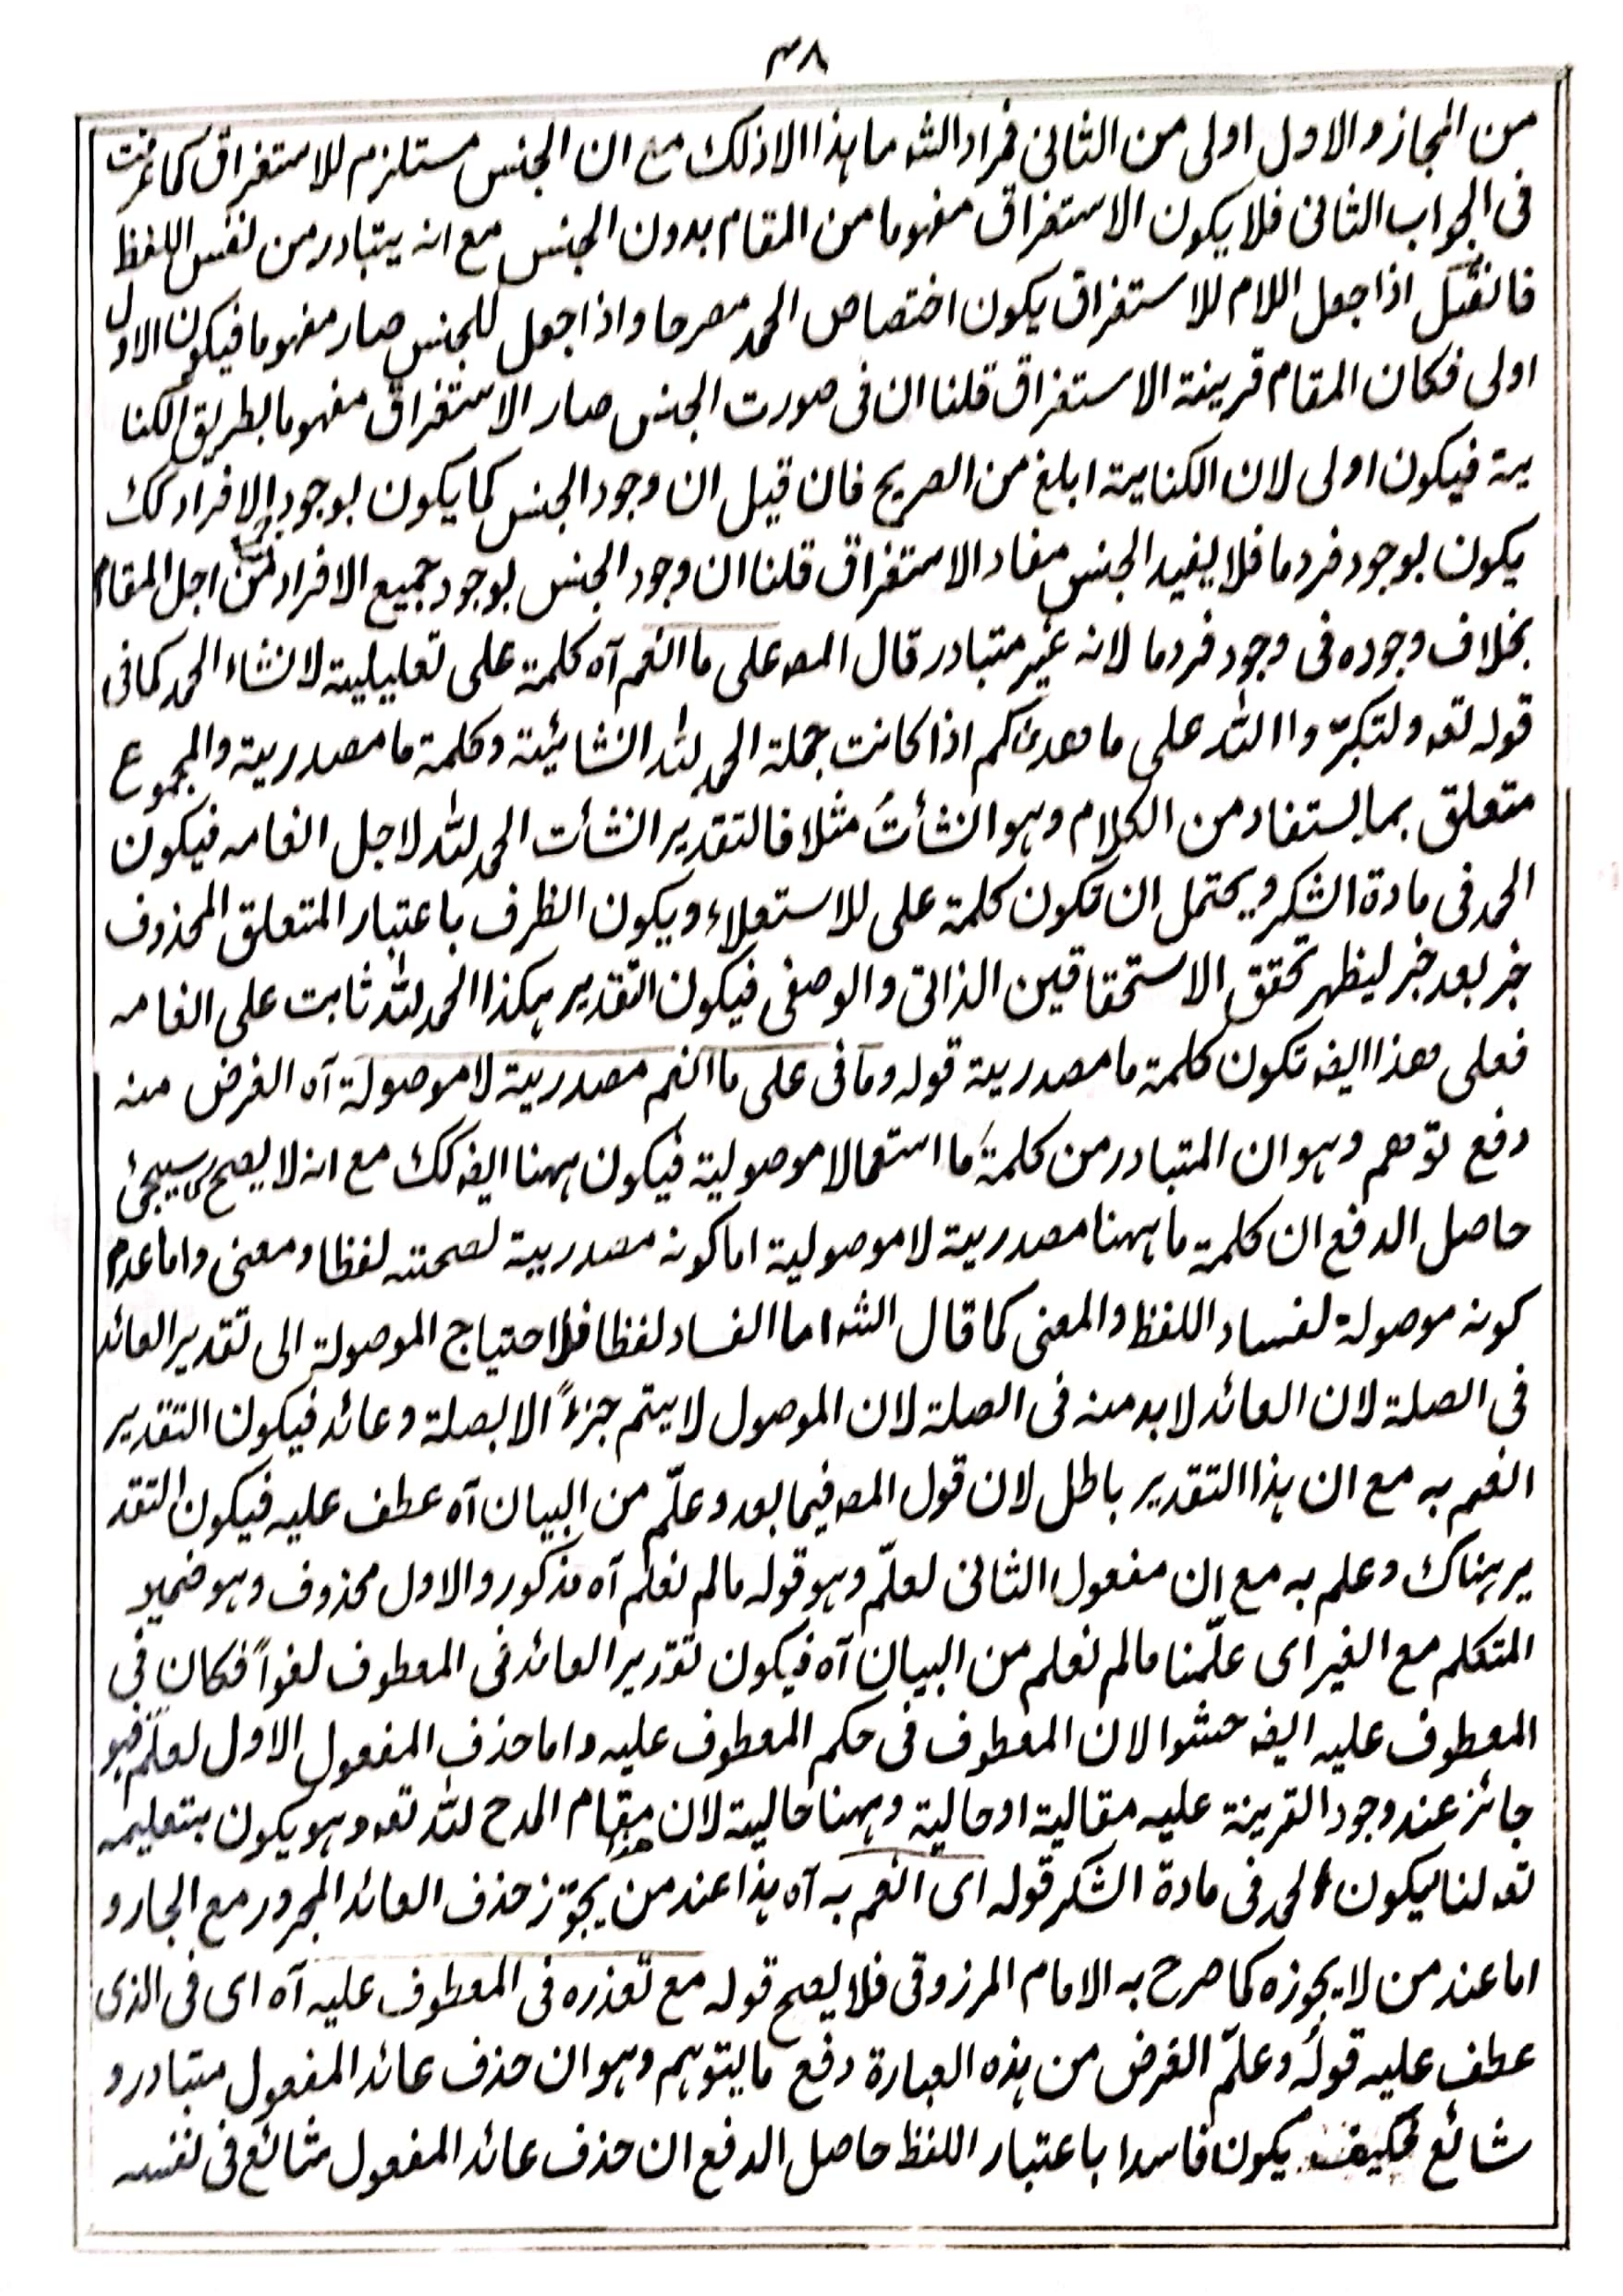 ٣٨
من المجاز والاول اولى من الثانى فمراد الشه ما هذا الا ذلك مع ان الجنس مستلزم للاستغراق كما عرفت
فى الجواب الثانى فلا يكون الاستغراق مفهوما من المقام بدون الجنس مع انه يتبادر من نفس اللفظ
فانقيل اذا جعل اللام للاستغراق يكون اختصاص الحمد مصرحا واذا جعل للجنس صار مفهوما فيكون الاول
اولى فكان المقام قرينة الاستغراق قلنا ان فى صورت الجنس صار الاستغراق مفهوما بطريق الكنا
ية فيكون اولى لان الكناية ابلغ من الصريح فان قيل ان وجود الجنس كما يكون بوجود الافراد كك
يكون بوجود فرد ما فلا يفيد الجنس مفاد الاستغراق قلنا ان وجود الجنس بوجود جميع الافراد من اجل المقام
بخلاف وجوده فى وجود فرد ما لانه غير متبادر قال المصه على ما انعم آه كلمة على تعليلية لانشاء الحمد كما فى
قوله تعه ولتكبّروا الله على ما هدىكم اذا كانت جملة الحمد لله انشائية وكلمة ما مصدرية والمجموع
متعلق بما يستفاد من الكلام وهو انشأتُ مثلا فالتقدير انشأت الحمد لله لاجل انعامه فيكون
الحمد فى مادة الشكر ويحتمل ان تكون كلمة على للاستعلاء ويكون الظرف باعتبار المتعلق المحذوف
خبر بعد خبر ليظهر تحقق الاستحقاقين الذاتى والوصفى فيكون التقدير هكذا الحمد لله ثابت على انعامه
فعلى هذا ايضه تكون كلمة ما مصدرية قوله وما فى على ما انعم مصدرية لا موصولة آه الغرض منه
دفع توهم وهو ان المتبادر من كلمة ما استعمالا موصولية فيكون ههنا ايضه كك مع انه لا يصح كما سيجئ
حاصل الدفع ان كلمة ما ههنا مصدرية لا موصولية اما كونه مصدرية لصحته لفظا ومعنى واما عدم
كونه موصولة لفساد اللفظ والمعنى كما قال الشه اما الفساد لفظا فلاحتياج الموصولة الى تقدير العائد
فى الصلة لان العائد لا بد منه فى الصلة لان الموصول لا يتم جزءً الا بصلة وعائد فيكون التقدير
انعم به مع ان هذا التقدير باطل لان قول المصه فيما بعد وعلّم من البيان آه عطف عليه فيكون التقد
ير هناك وعلم به مع ان مفعول الثانى لعلّم وهو قوله ما لم نعلم آه مذكور والاول محذوف وهو ضمير
المتكلم مع الغير اى علّمنا ما لم نعلم من البيان آه فيكون تقدير العائد فى المعطوف لغواً فكان فى
المعطوف عليه ايضه حشوا لان المعطوف فى حكم المعطوف عليه واما حذف المفعول الاول لعلّم فهو
جائز عند وجود القرينة عليه مقالية او حالية وههنا حالية لان مقام المدح لله تعه وهو يكون بتعليمه
تعه لنا ليكون الحمد فى مادة الشكر قوله اى انعم به آه هذا عند من يجوّز حذف العائد المجرور مع الجار و
اما عند من لا يجوزه كما صرح به الامام المرزوقى فلا يصح قوله مع تعذره فى المعطوف عليه آه اى فى الذى
عطف عليه قوله وعلّم الغرض من هذه العبارة دفع ما يتوهم وهو ان حذف عائد المفعول متبادر و
شائع فكيف يكون فاسدا باعتبار اللفظ حاصل الدفع ان حذف عائد المفعول شائع فى نفسه